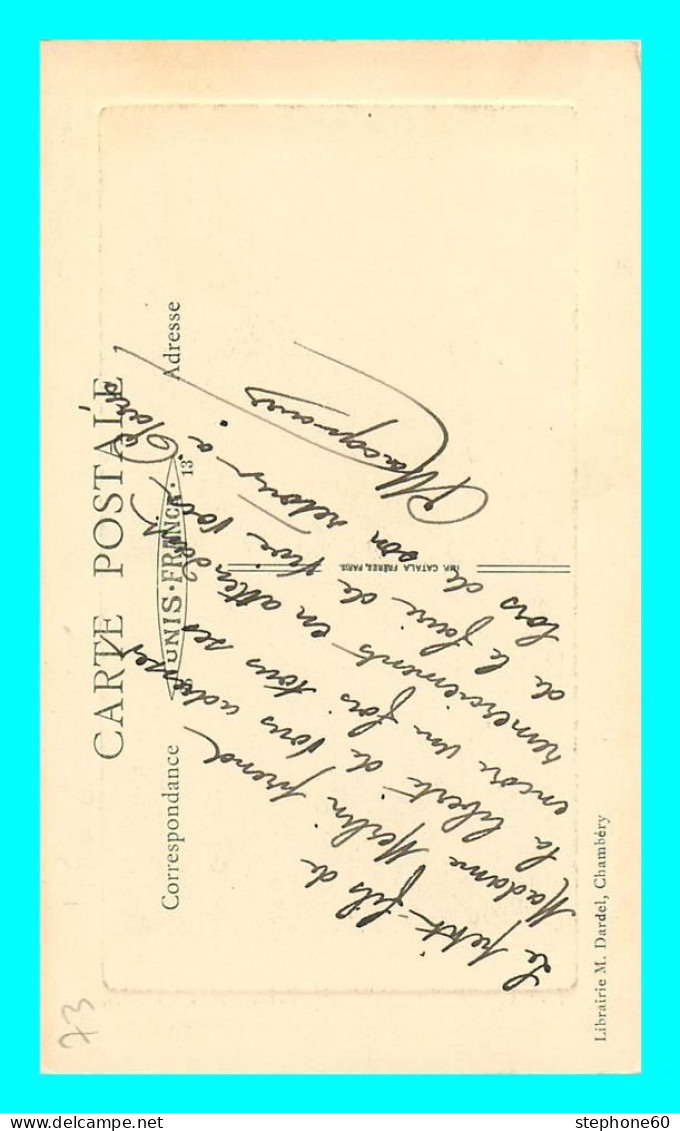 CARTE POSTALE
Correspondance
Adresse
UNIS-FRANCE
13
IMP. CATALA FRÈRES, PARIS
Le petit-fils de
Madame Merlin prend
la liberté de vous adresser
encore une fois tous ses
remerciements en attendant
de le faire de vive voix
lors de son retour à Paris
Librairie M. Dardel, Chambéry
73
stephone60